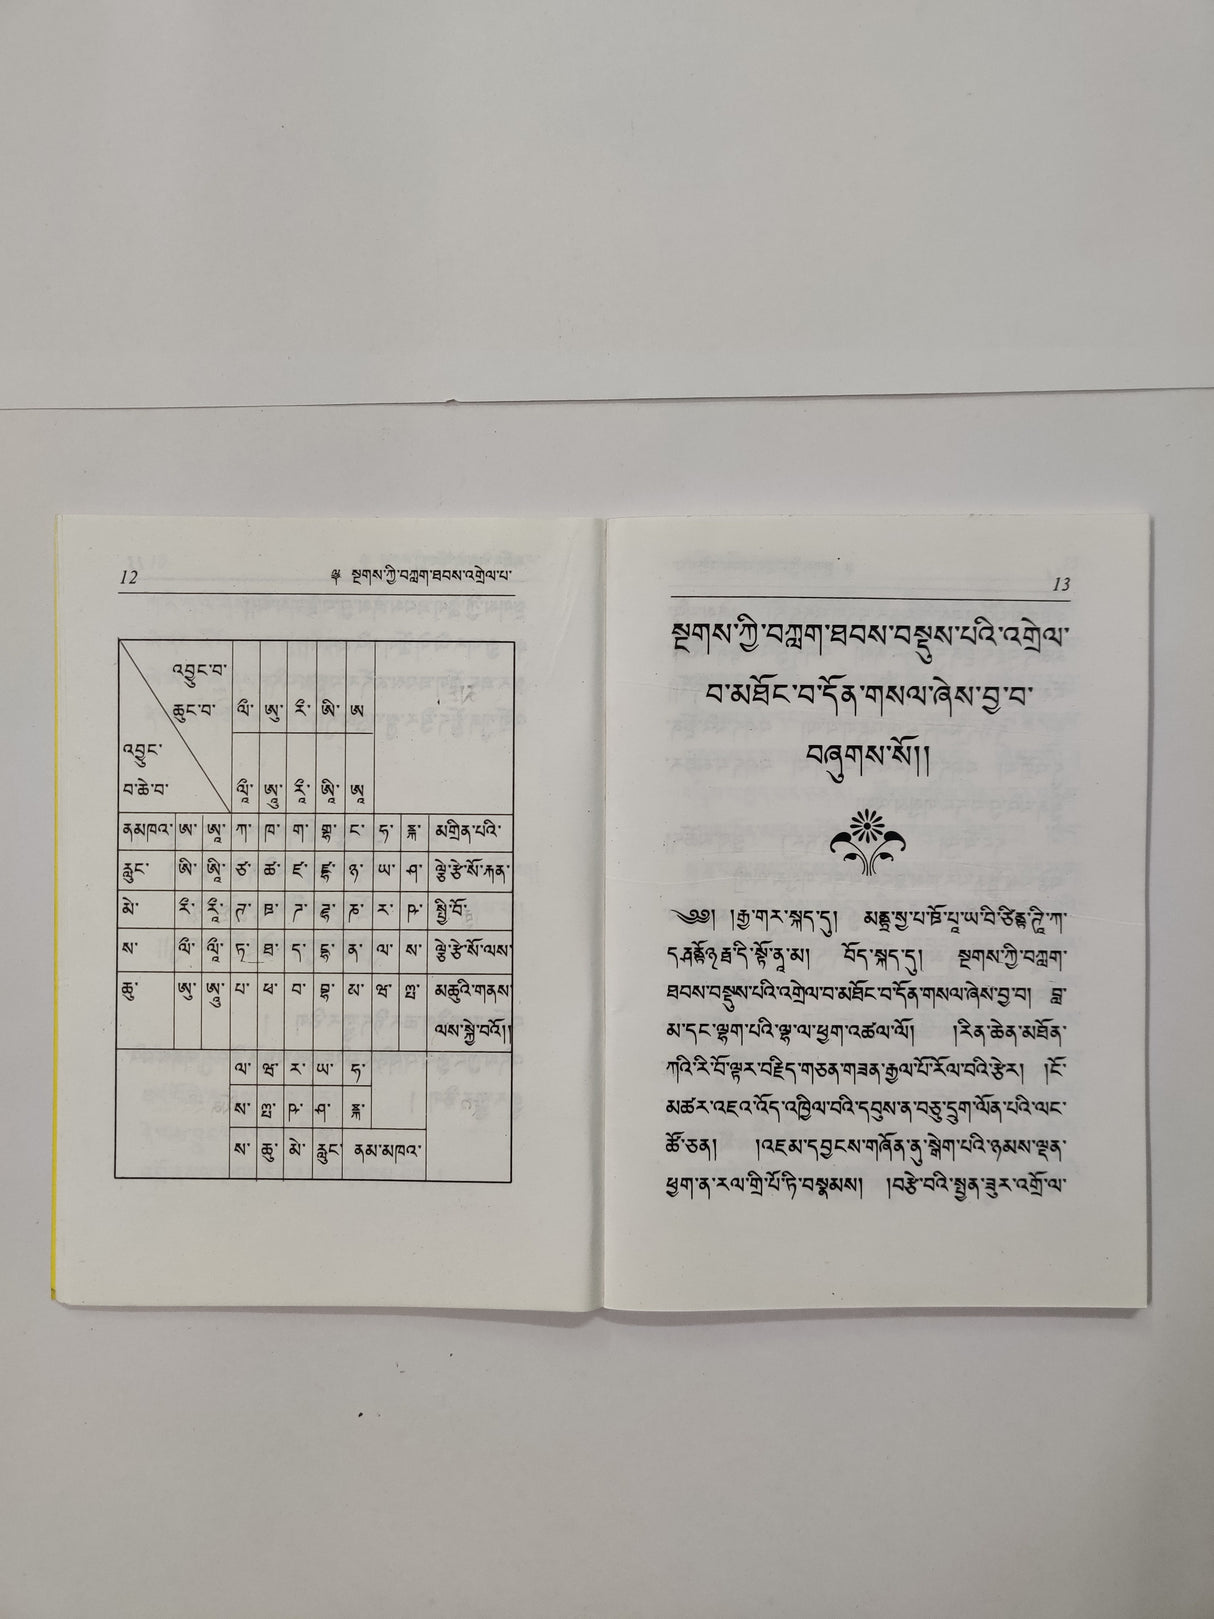 12
༈ སྔགས་ཀྱི་བཀླག་ཐབས་འགྲེལ་པ་
འབྱུང་བ་
ཆུང་བ་ ལྀ་ ཨུ་ རྀ་ ཨི་ ཨ
འབྱུང་
བ་ཆེ་བ་ ལཱྀ་ ཨཱུ་ རཱྀ་ ཨཱི་ ཨཱ
ནམཁའ་ ཨ་ ཨཱ་ ཀ་ ཁ་ ག་ གྷ་ ང་ ཧ་ ཀྵ་ མགྲིན་པའི་
རླུང་ ཨི་ ཨཱི་ ཙ་ ཚ་ ཛ་ ཛྷ་ ཉ་ ཡ་ ཤ་ ལྕེ་རྩེ་སོ་རྐན་
མེ་ རྀ་ རཱྀ་ ཊ་ ཋ་ ཌ་ ཌྷ་ ཎ་ ར་ ཥ་ སྤྱི་བོ་
ས་ ལྀ་ ལཱྀ་ ཏ་ ཐ་ ད་ དྷ་ ན་ ལ་ ས་ ལྕེ་རྩེ་སོ་ལས་
ཆུ་ ཨུ་ ཨཱུ་ པ་ ཕ་ བ་ བྷ་ མ་ མཆུའི་གནས་
ལས་སྐྱེ་བའོ།།
ལ་ ར་ ཡ་ ཧ་
ས་ ཥ་ ཤ་ ཀྵ་
ས་ ཆུ་ མེ་ རླུང་ ནམ་མཁའ་
13
སྔགས་ཀྱི་བཀླག་ཐབས་བསྡུས་པའི་འགྲེལ་
བ་མཐོང་བ་དོན་གསལ་ཞེས་བྱ་བ་
བཞུགས་སོ།།
༄༅། །རྒྱ་གར་སྐད་དུ། མནྟྲ་སྱ་པ་
བོད་སྐད་དུ། སྔགས་ཀྱི་བཀླག་
ཐབས་བསྡུས་པའི་འགྲེལ་བ་མཐོང་བ་དོན་གསལ་ཞེས་བྱ་བ། བླ་
མ་དང་ལྷག་པའི་ལྷ་ལ་ཕྱག་འཚལ་ལོ། །རིན་ཆེན་མཐོན་
ཀའི་རི་བོ་ལྟར་བརྗིད་གཅན་གཟན་རྒྱལ་པོ་རོལ་བའི་རྩེར། །ངོ་
མཚར་འཇའ་འོད་འཁྱིལ་བའི་དབུས་ན་བཅུ་དྲུག་ལོན་པའི་ལང་
ཚོ་ཅན། །འཇམ་དབྱངས་གཞོན་ནུ་སྒེག་པའི་ཉམས་ལྡན་
ཕྱག་ན་རལ་གྲི་པོ་ཏི་བསྣམས། །བརྩེ་བའི་སྤྱན་ཟུར་འགྲོ་ལ་